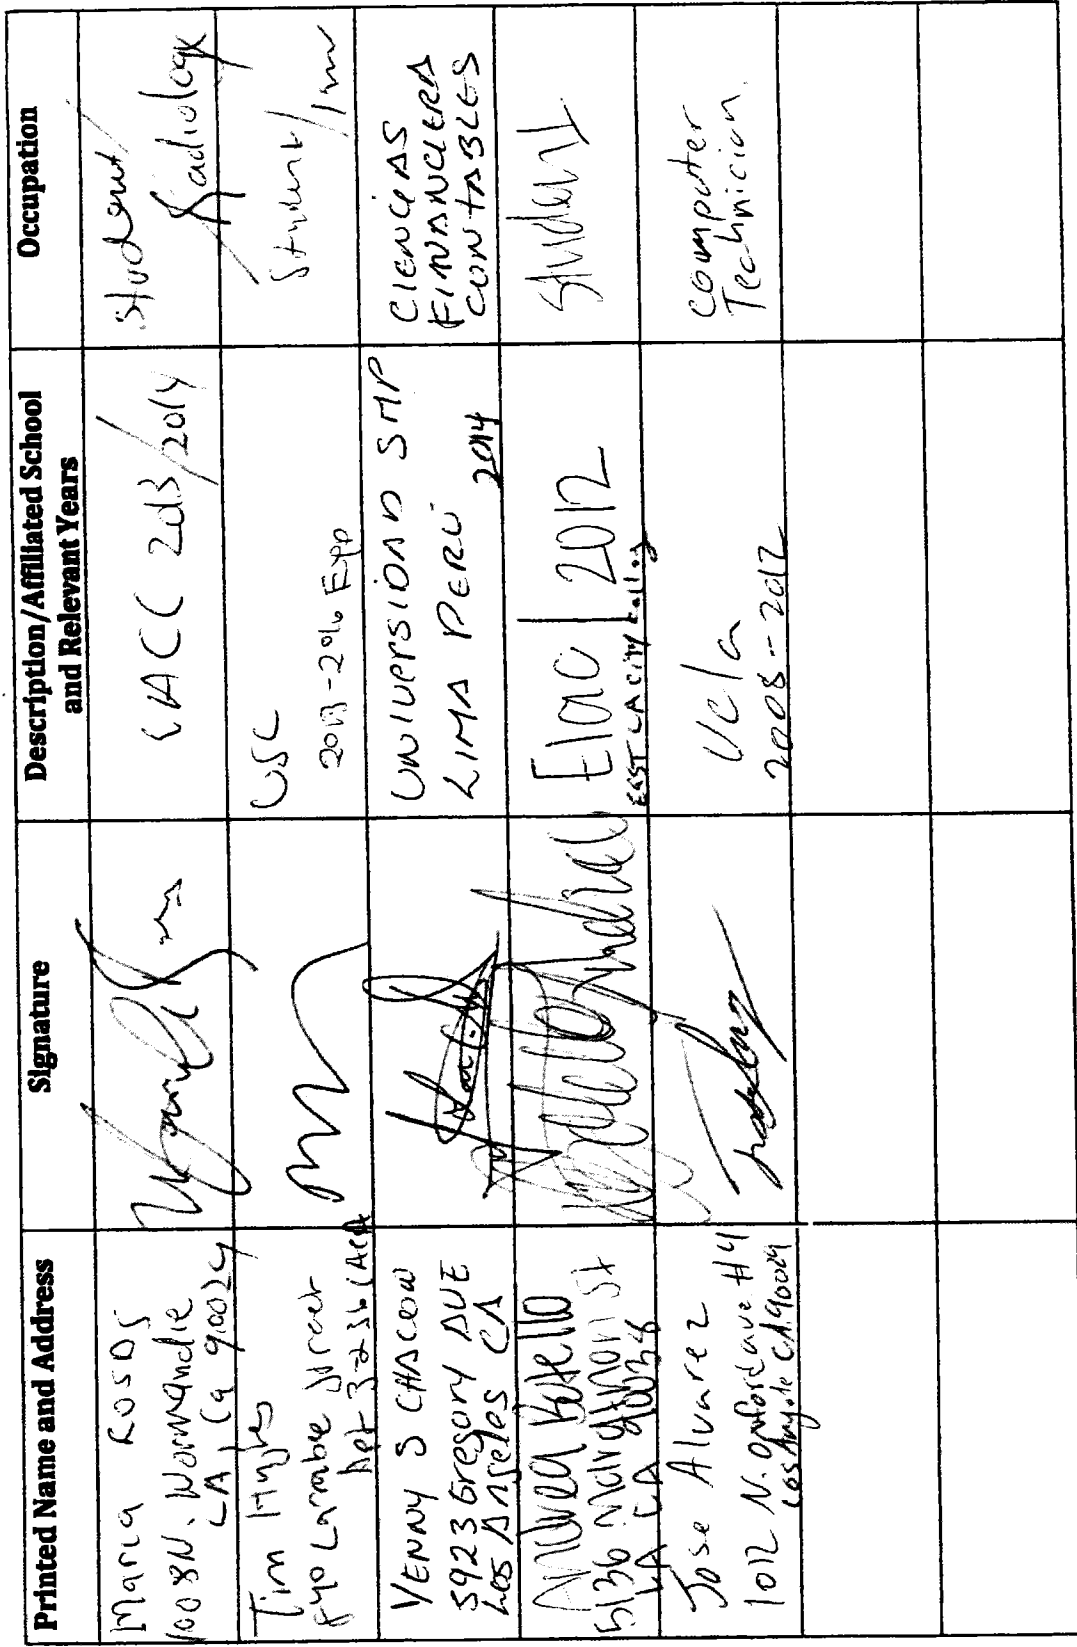 Printed Name and Address
Signature
Description/Affiliated School
and Relevant Years
Occupation
Maria Rosas
1008 N. Normandie
LA, Ca 90029
LACC 2013/2014
Student/
Radiology
Tim
Street
Apt
USC
2013-2016 Exp
Student/
VENNY S CHACON
5923 Gregory AVE
Los Angeles CA
UNIVERSIDAD SMP
LIMA PERU 2014
CIENCIAS
FINANCIERA
CONTABLES
Andrea Botello
5136 Marathon St
LA CA 90038
Elac | 2012
EAST LA City College
Student
Jose Alvarez
1012 N. Oxford ave #4
Los Angele CA 90029
Ucla
2008--2012
computer
Technician